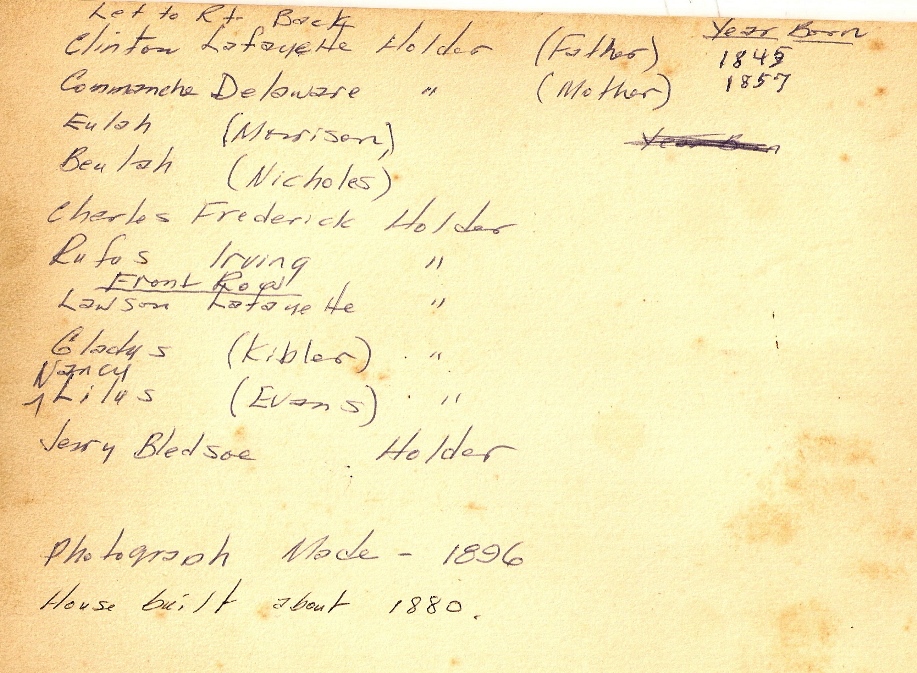 Let to Rt. Back Year Born
Clinton Lafayette Holder (Father) 1845
Commanche Delaware " (Mother) 1857
Eulah (Morrison) Year Born
Beulah (Nicholes)
Charles Frederick Holder
Rufos Irving "
Front Row
Lawson Lafayette "
Gladys (Kibler) "
Nancy
^ Lilus (Evans) "
Jerry Bledsoe Holder
Photograph Made - 1896
House built about 1880.